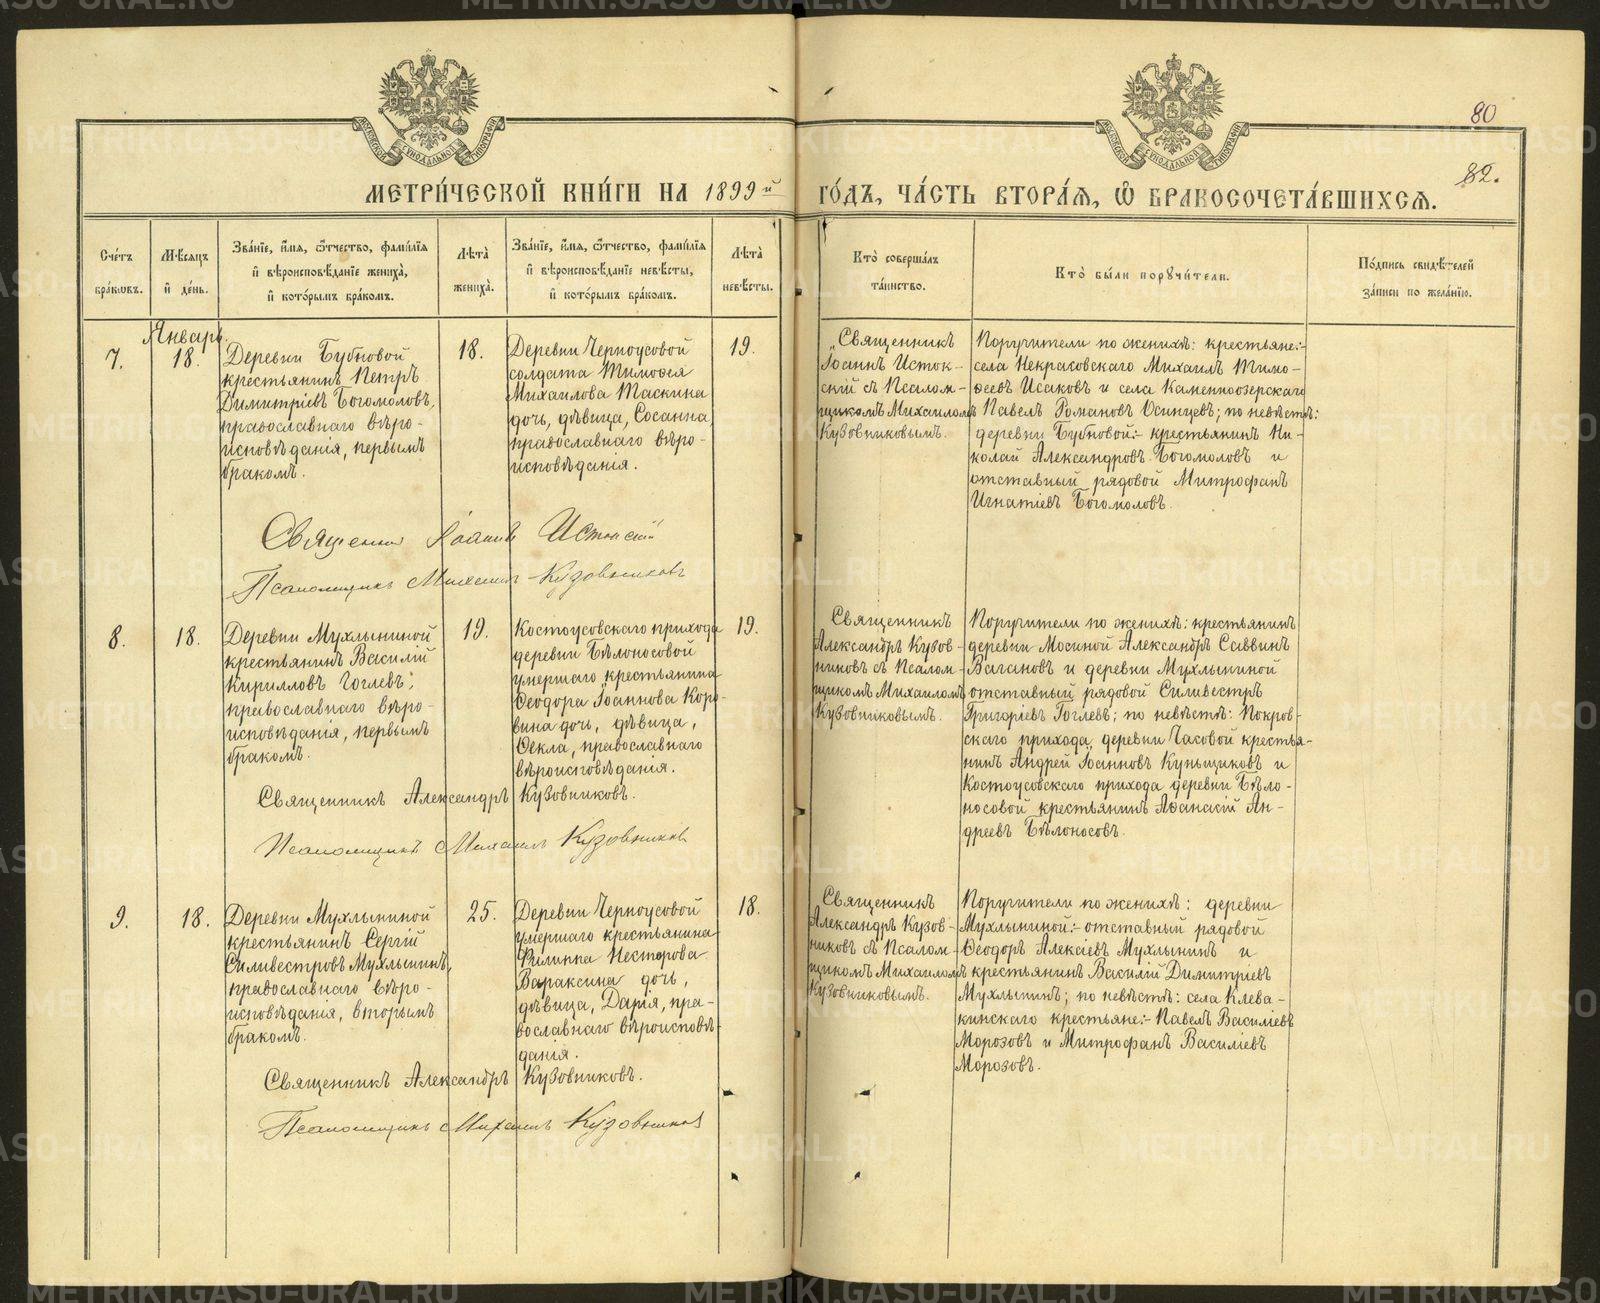 80
82.
МЕТРИ́ЧЕСКОЙ КНИ́ГИ НА 1899й ГО́ДЪ, ЧА́СТЬ ВТОРА́Я, Ѽ БРАКОСОЧЕТА́ВШИХСЯ.
Сче́тъ
бра́кѡвъ.
Мѣ́сяцъ
и҆ де́нь.
Зва́нїе, и҆́мя, ѻ҆́тчество, фами́лїя
и҆ вѣроисповѣ́данїе жениха̀,
и҆ кото́рымъ бра́комъ.
Лѣта̀
жениха̀.
Зва́нїе, и҆́мя, ѻ҆́тчество, фами́лїя
и҆ вѣроисповѣ́данїе невѣ́сты,
и҆ кото́рымъ бра́комъ.
Лѣта̀
невѣ́сты.
Кто̀ соверша́лъ
та́инство.
Кто̀ бы́ли порꙋчи́тели.
По́дпись свидѣ́телей
за́писи по жела́нїю.
Январь.
7.
18.
Деревни Бубновой
крестьянинъ Петръ
Димитріевъ Богомоловъ,
православнаго вѣро-
исповѣданія, первымъ
бракомъ.
18.
Деревни Черноусовой
солдата Тимоѳея
Михаилова Таскина
дочь, дѣвица, Сосанна,
православнаго вѣро-
исповѣданія.
19.
Священникъ
Іоаннъ Исток-
скій съ Псалом-
щикомъ Михаиломъ
Кузовниковымъ.
Поручители по женихѣ: крестьяне:-
села Некрасовскаго Михаилъ Тимо-
ѳеевъ Исаковъ и села Каменноозерскаго
Павелъ Романовъ Осинцевъ; по невѣстѣ:
деревни Бубновой:- крестьянинъ Ни-
колай Александровъ Богомоловъ и
отставный рядовой Митрофанъ
Игнатіевъ Богомоловъ.
Священникъ Іоаннъ Истокскій
Псаломщикъ Михаилъ Кузовниковъ
8.
18.
Деревни Мухлыниной
крестьянинъ Василій
Кирилловъ Гоглевъ;
православнаго вѣро-
исповѣданія, первымъ
бракомъ.
19.
Костоусовскаго прихода
деревни Бѣлоносовой
умершаго крестьянина
Ѳеодора Іоаннова Коро-
вина дочь, дѣвица,
Ѳекла, православнаго
вѣроисповѣданія.
19.
Священникъ
Александръ Кузов-
никовъ съ Псалом-
щикомъ Михаиломъ
Кузовниковымъ.
Поручители по женихѣ: крестьянинъ
деревни Мосиной Александръ Саввинъ
Вагановъ и деревни Мухлыниной
отставный рядовой Силивестръ
Григоріевъ Гоглевъ; по невѣстѣ: Покров-
скаго прихода, деревни Часовой крестья-
нинъ Андрей Іоанновъ Куньщиковъ и
Костоусовскаго прихода деревни Бѣло-
носовой крестьянинъ Аѳанасій Ан-
дреевъ Бѣлоносовъ.
Священникъ Александръ Кузовниковъ.
Псаломщикъ Михаилъ Кузовниковъ
9.
18.
Деревни Мухлыниной
крестьянинъ Сергій
Силивестровъ Мухлынинъ,
православнаго вѣро-
исповѣданія, вторымъ
бракомъ.
25.
Деревни Черноусовой
умершаго крестьянина
Филиппа Несторова
Вараксина дочь,
дѣвица, Дарія, пра-
вославнаго вѣроисповѣ-
данія.
18.
Священникъ
Александръ Кузов-
никовъ съ Псалом-
щикомъ Михаиломъ
Кузовниковымъ.
Поручители по женихѣ: деревни
Мухлыниной:- отставный рядовой
Ѳеодоръ Алексіевъ Мухлынинъ и
крестьянинъ Василій Димитріевъ
Мухлынинъ; по невѣстѣ: села Клева-
кинскаго крестьяне:- Павелъ Василіевъ
Морозовъ и Митрофанъ Василіевъ
Морозовъ.
Священникъ Александръ Кузовниковъ.
Псаломщикъ Михаилъ Кузовниковъ